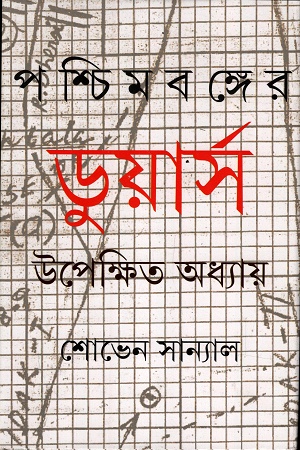 পশ্চিমবঙ্গের
ডুয়ার্স
উপেক্ষিত অধ্যায়
শোভেন সান্যাল